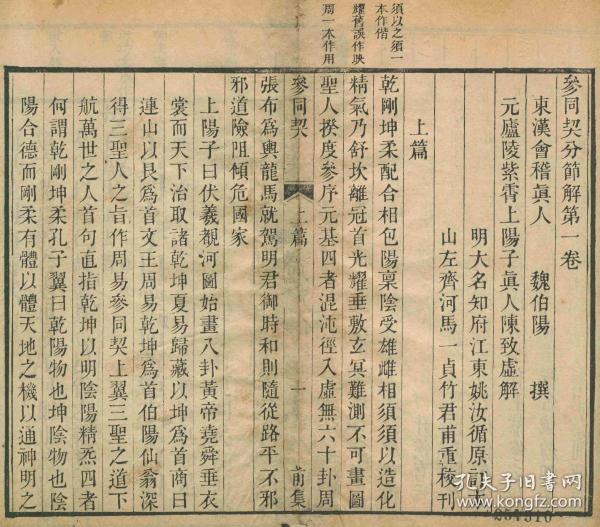 須以之須一
本作偕
耀舊誤作映
周一本作用
參同契分節解第一卷
東漢會稽眞人 魏伯陽 撰
元廬陵紫霄上陽子眞人陳致虛解
明大名知府江東姚汝循原訂
山左齊河馬一貞竹君甫重稜刊
上篇
乾剛坤柔配合相包陽稟陰受雄雌相須須以造化
精氣乃舒坎離冠首光耀垂敷玄冥難測不可畫圖
聖人揆度參序元基四者混沌徑入虛無六十卦周
參同契 上篇 一 前集
張布爲輿龍馬就駕明君御時和則隨從路平不邪
邪道險阻傾危國家
上陽子曰伏羲觀河圖始畫八卦黃帝堯舜垂衣
裳而天下治取諸乾坤夏易歸藏以坤爲首商曰
連山以艮爲首文王周易乾坤爲首伯陽仙翁深
得三聖人之旨作周易參同契上翼三聖之道下
航萬世之人首句直指乾坤以明陰陽精炁四者
何謂乾剛坤柔孔子翼曰乾陽物也坤陰物也陰
陽合德而剛柔有體以體天地之機以通神明之
孔夫子旧书网
kongfz.com